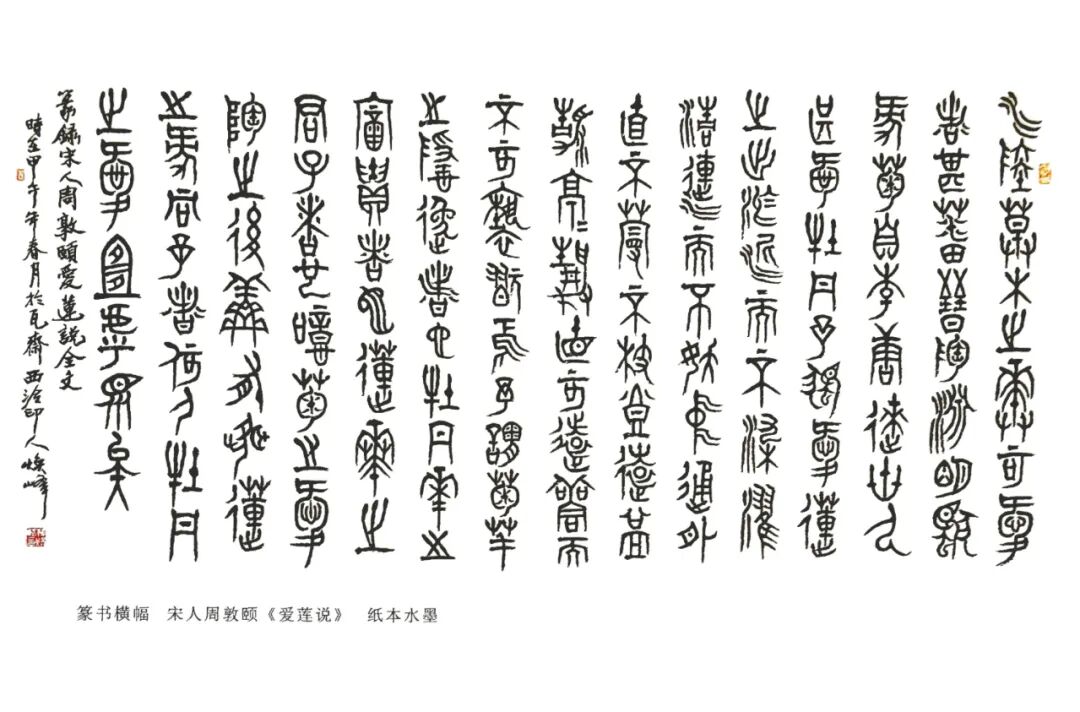 水陸草木之華可愛
者甚蕃晉陶淵明獨
愛菊自李唐來世人
甚愛牡丹予獨愛蓮
之出淤泥而不染濯
清漣而不妖中通外
直不蔓不枝香遠益
清亭〻淨植可遠觀而
不可褻翫焉予謂菊華
之隱逸者也牡丹華之
富貴者也蓮華之
君子者也噫菊之愛
陶之後鮮有聞蓮
之愛同予者何人牡丹
之愛宜乎眾矣
篆錄宋人周敦頤愛蓮說全文
時在甲午年春月於瓦齋西泠印人煥峰
篆书横幅 宋人周敦颐《爱莲说》 纸本水墨